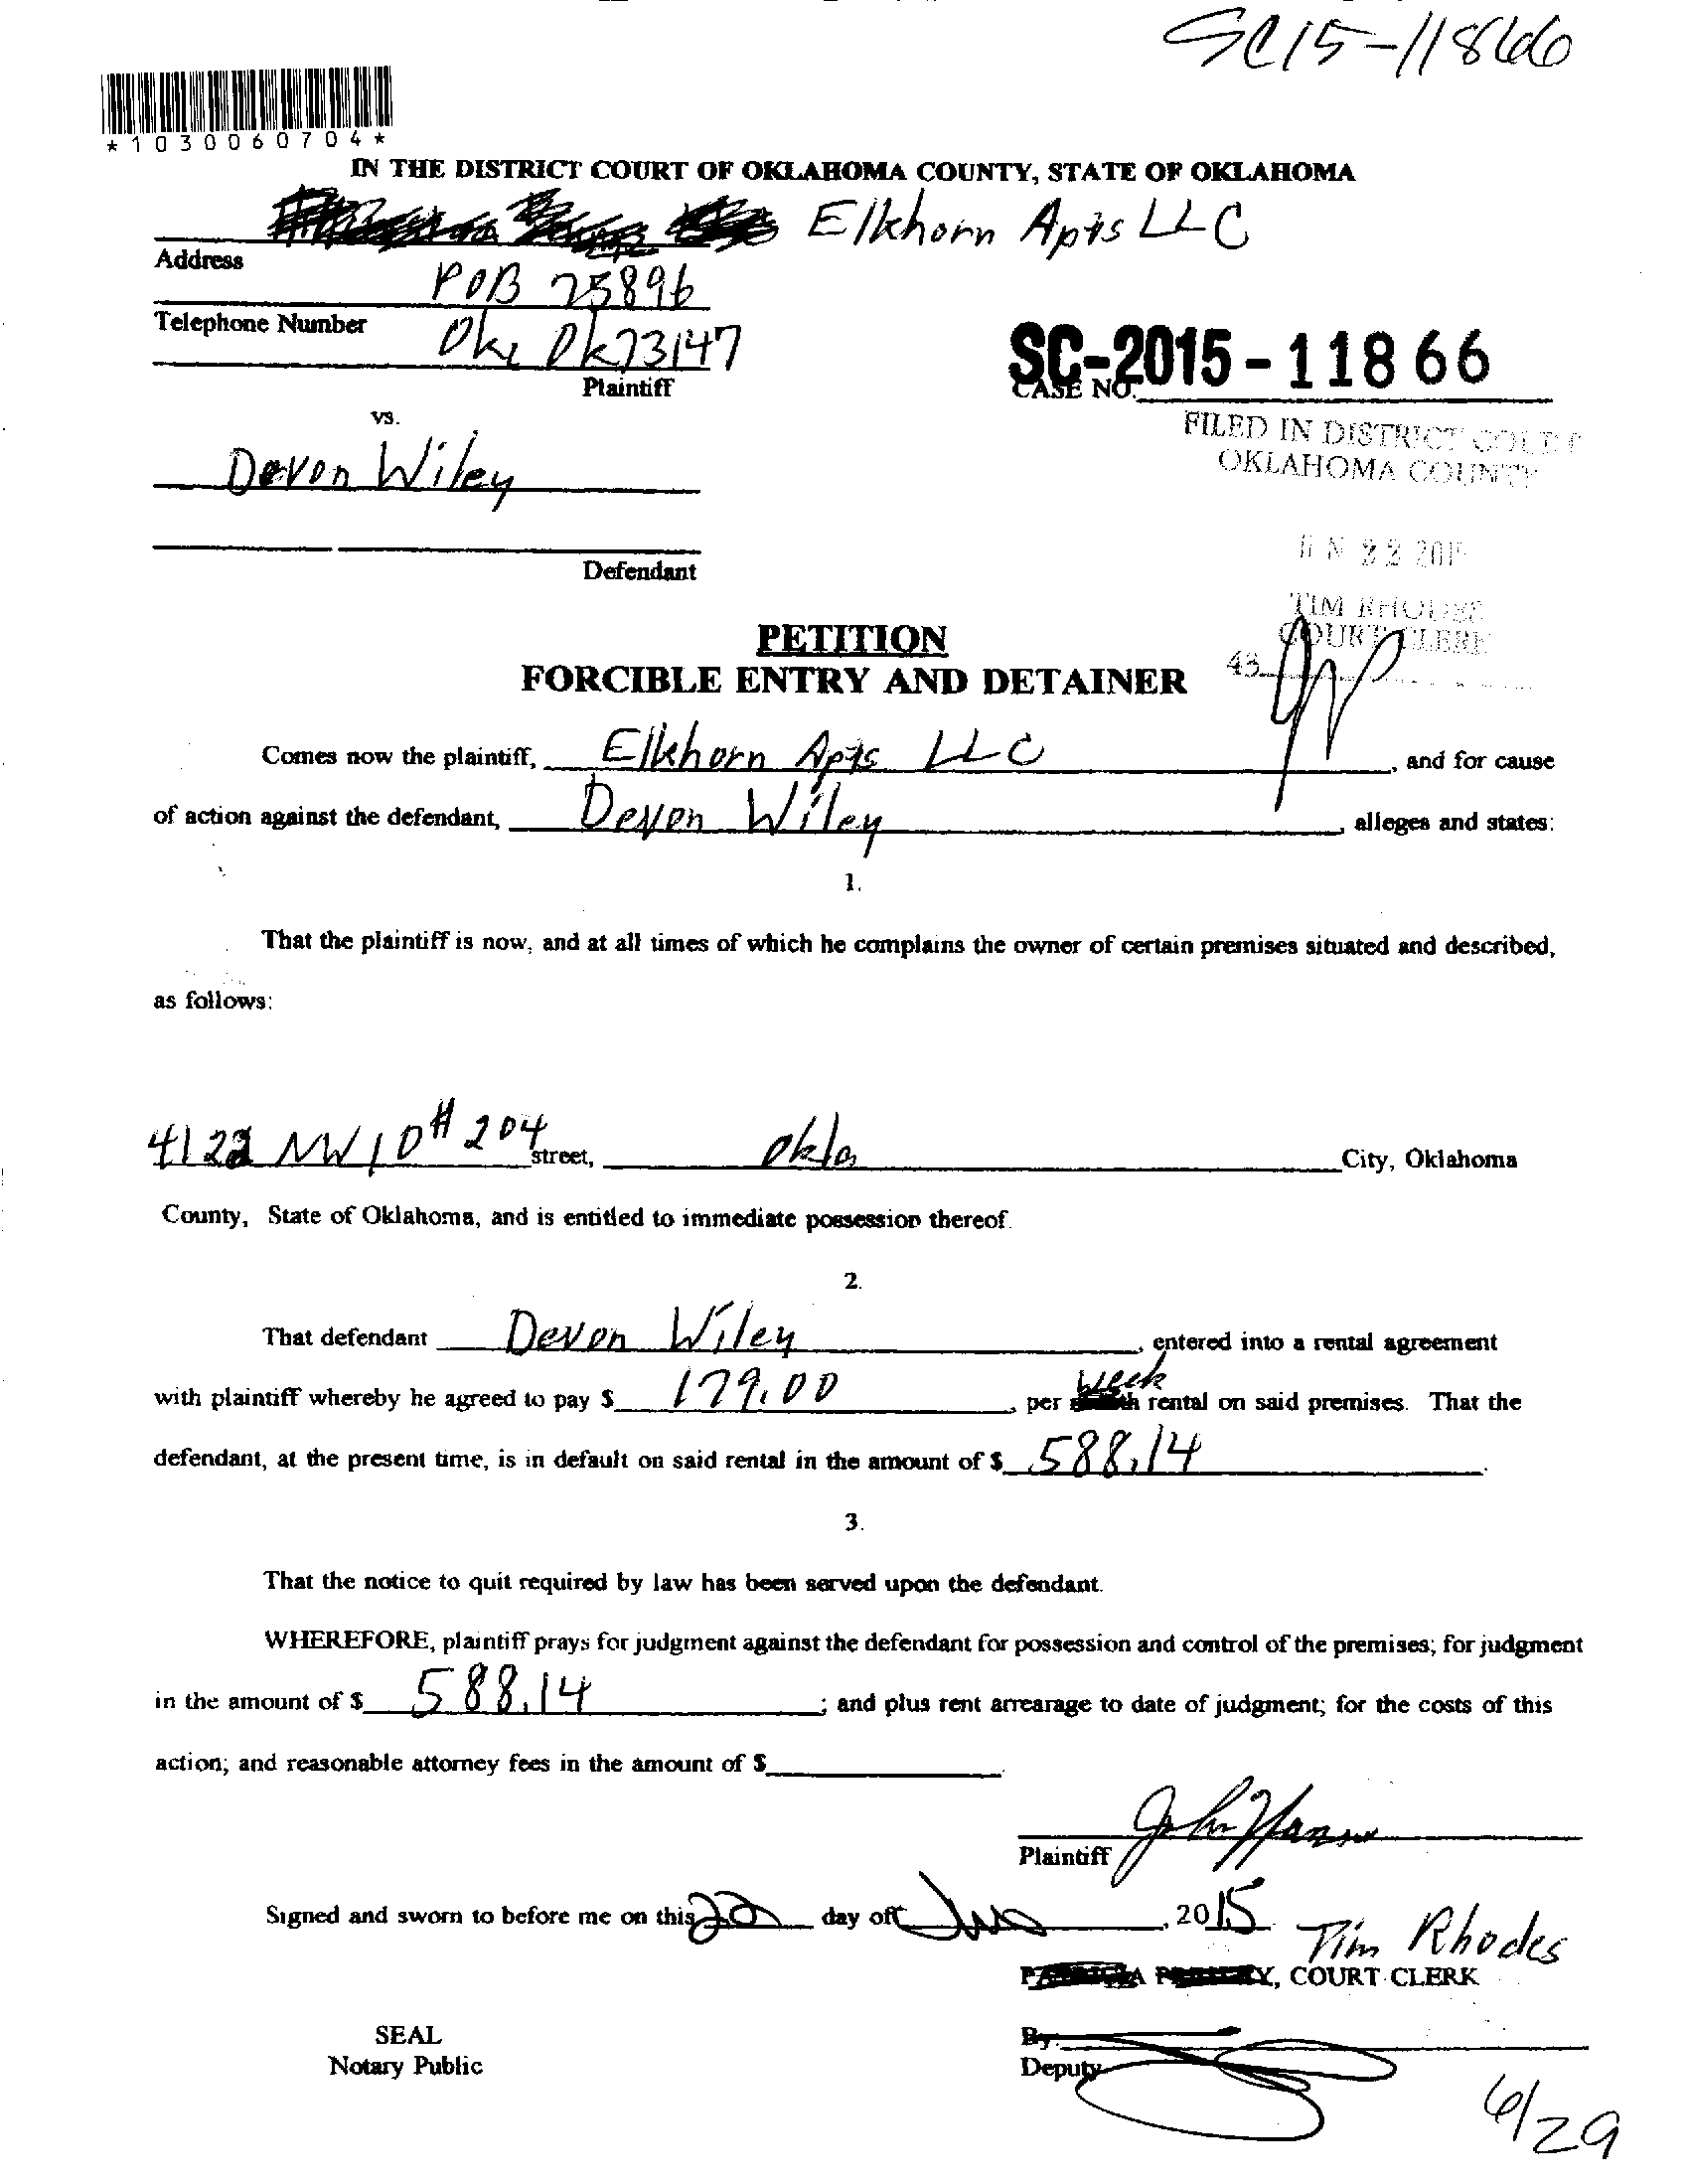 SC15-11866
*1030060704*
IN THE DISTRICT COURT OF OKLAHOMA COUNTY, STATE OF OKLAHOMA
Elkhorn Apts LLC
Address
POB 75896
Telephone Number
Okc Ok 73147
Plaintiff
SC-2015-11866
CASE NO.
vs.
FILED IN DISTRICT COURT
OKLAHOMA COUNTY
Devon Wiley
22 2015
Defendant
TIM RHODES
COURT CLERK
43
PETITION
FORCIBLE ENTRY AND DETAINER
Comes now the plaintiff, Elkhorn Apts LLC, and for cause
of action against the defendant, Devon Wiley, alleges and states:
1.
That the plaintiff is now, and at all times of which he complains the owner of certain premises situated and described,
as follows:
4122 NW 10 # 204 street, Okla City, Oklahoma
County, State of Oklahoma, and is entitled to immediate possession thereof.
2.
That defendant Devon Wiley, entered into a rental agreement
with plaintiff whereby he agreed to pay $ 179.00, per week rental on said premises. That the
defendant, at the present time, is in default on said rental in the amount of $ 588.14.
3.
That the notice to quit required by law has been served upon the defendant.
WHEREFORE, plaintiff prays for judgment against the defendant for possession and control of the premises; for judgment
in the amount of $ 588.14; and plus rent arrearage to date of judgment; for the costs of this
action; and reasonable attorney fees in the amount of $
John
Plaintiff
Signed and sworn to before me on this 22 day of Jun, 2015
Tim Rhodes
COURT CLERK
SEAL
Notary Public
By:
Deputy
6/29